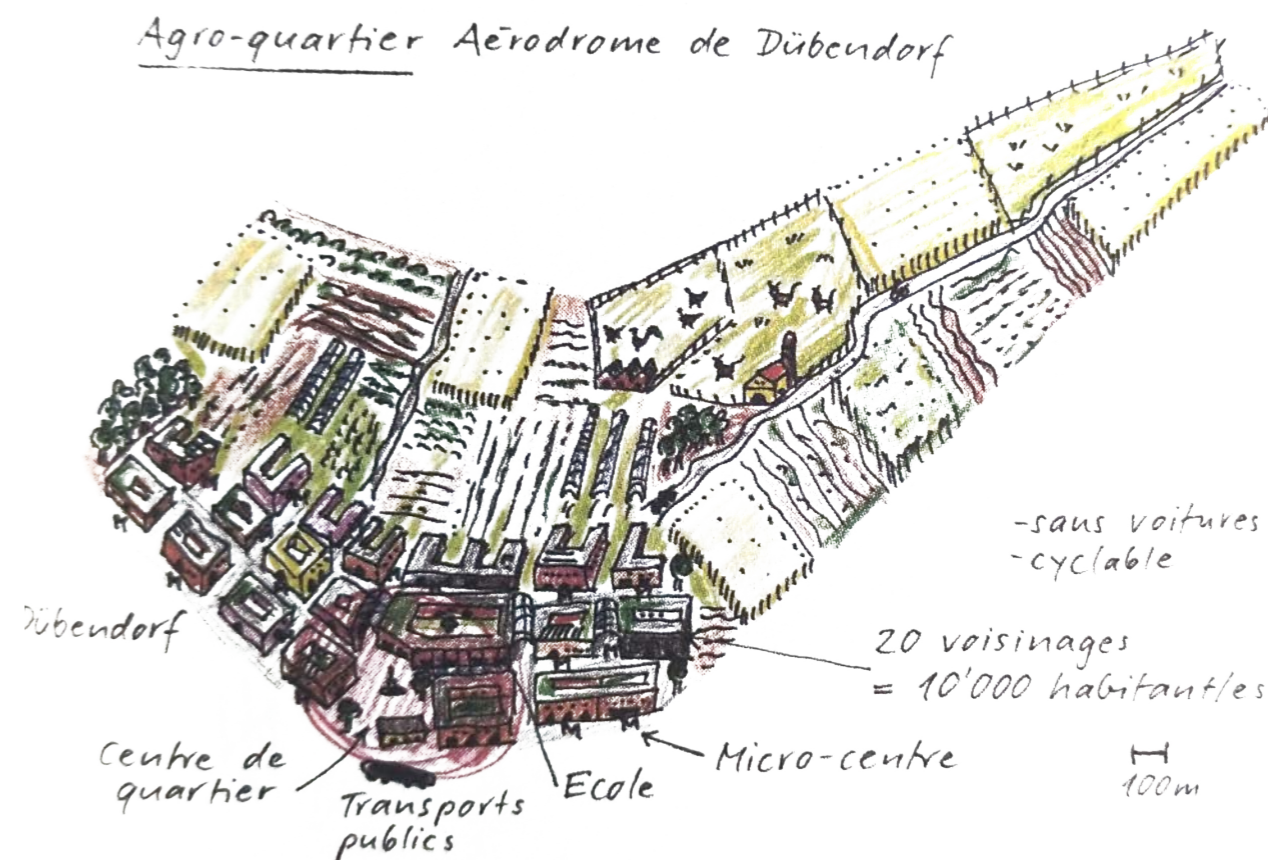 Agro-quartier Aérodrome de Dübendorf
-sans voitures
-cyclable
Dübendorf
20 voisinages
= 10'000 habitant/es
Centre de
quartier
Transports
publics
Ecole
Micro-centre
100m
M
M
M
M
M
M
M